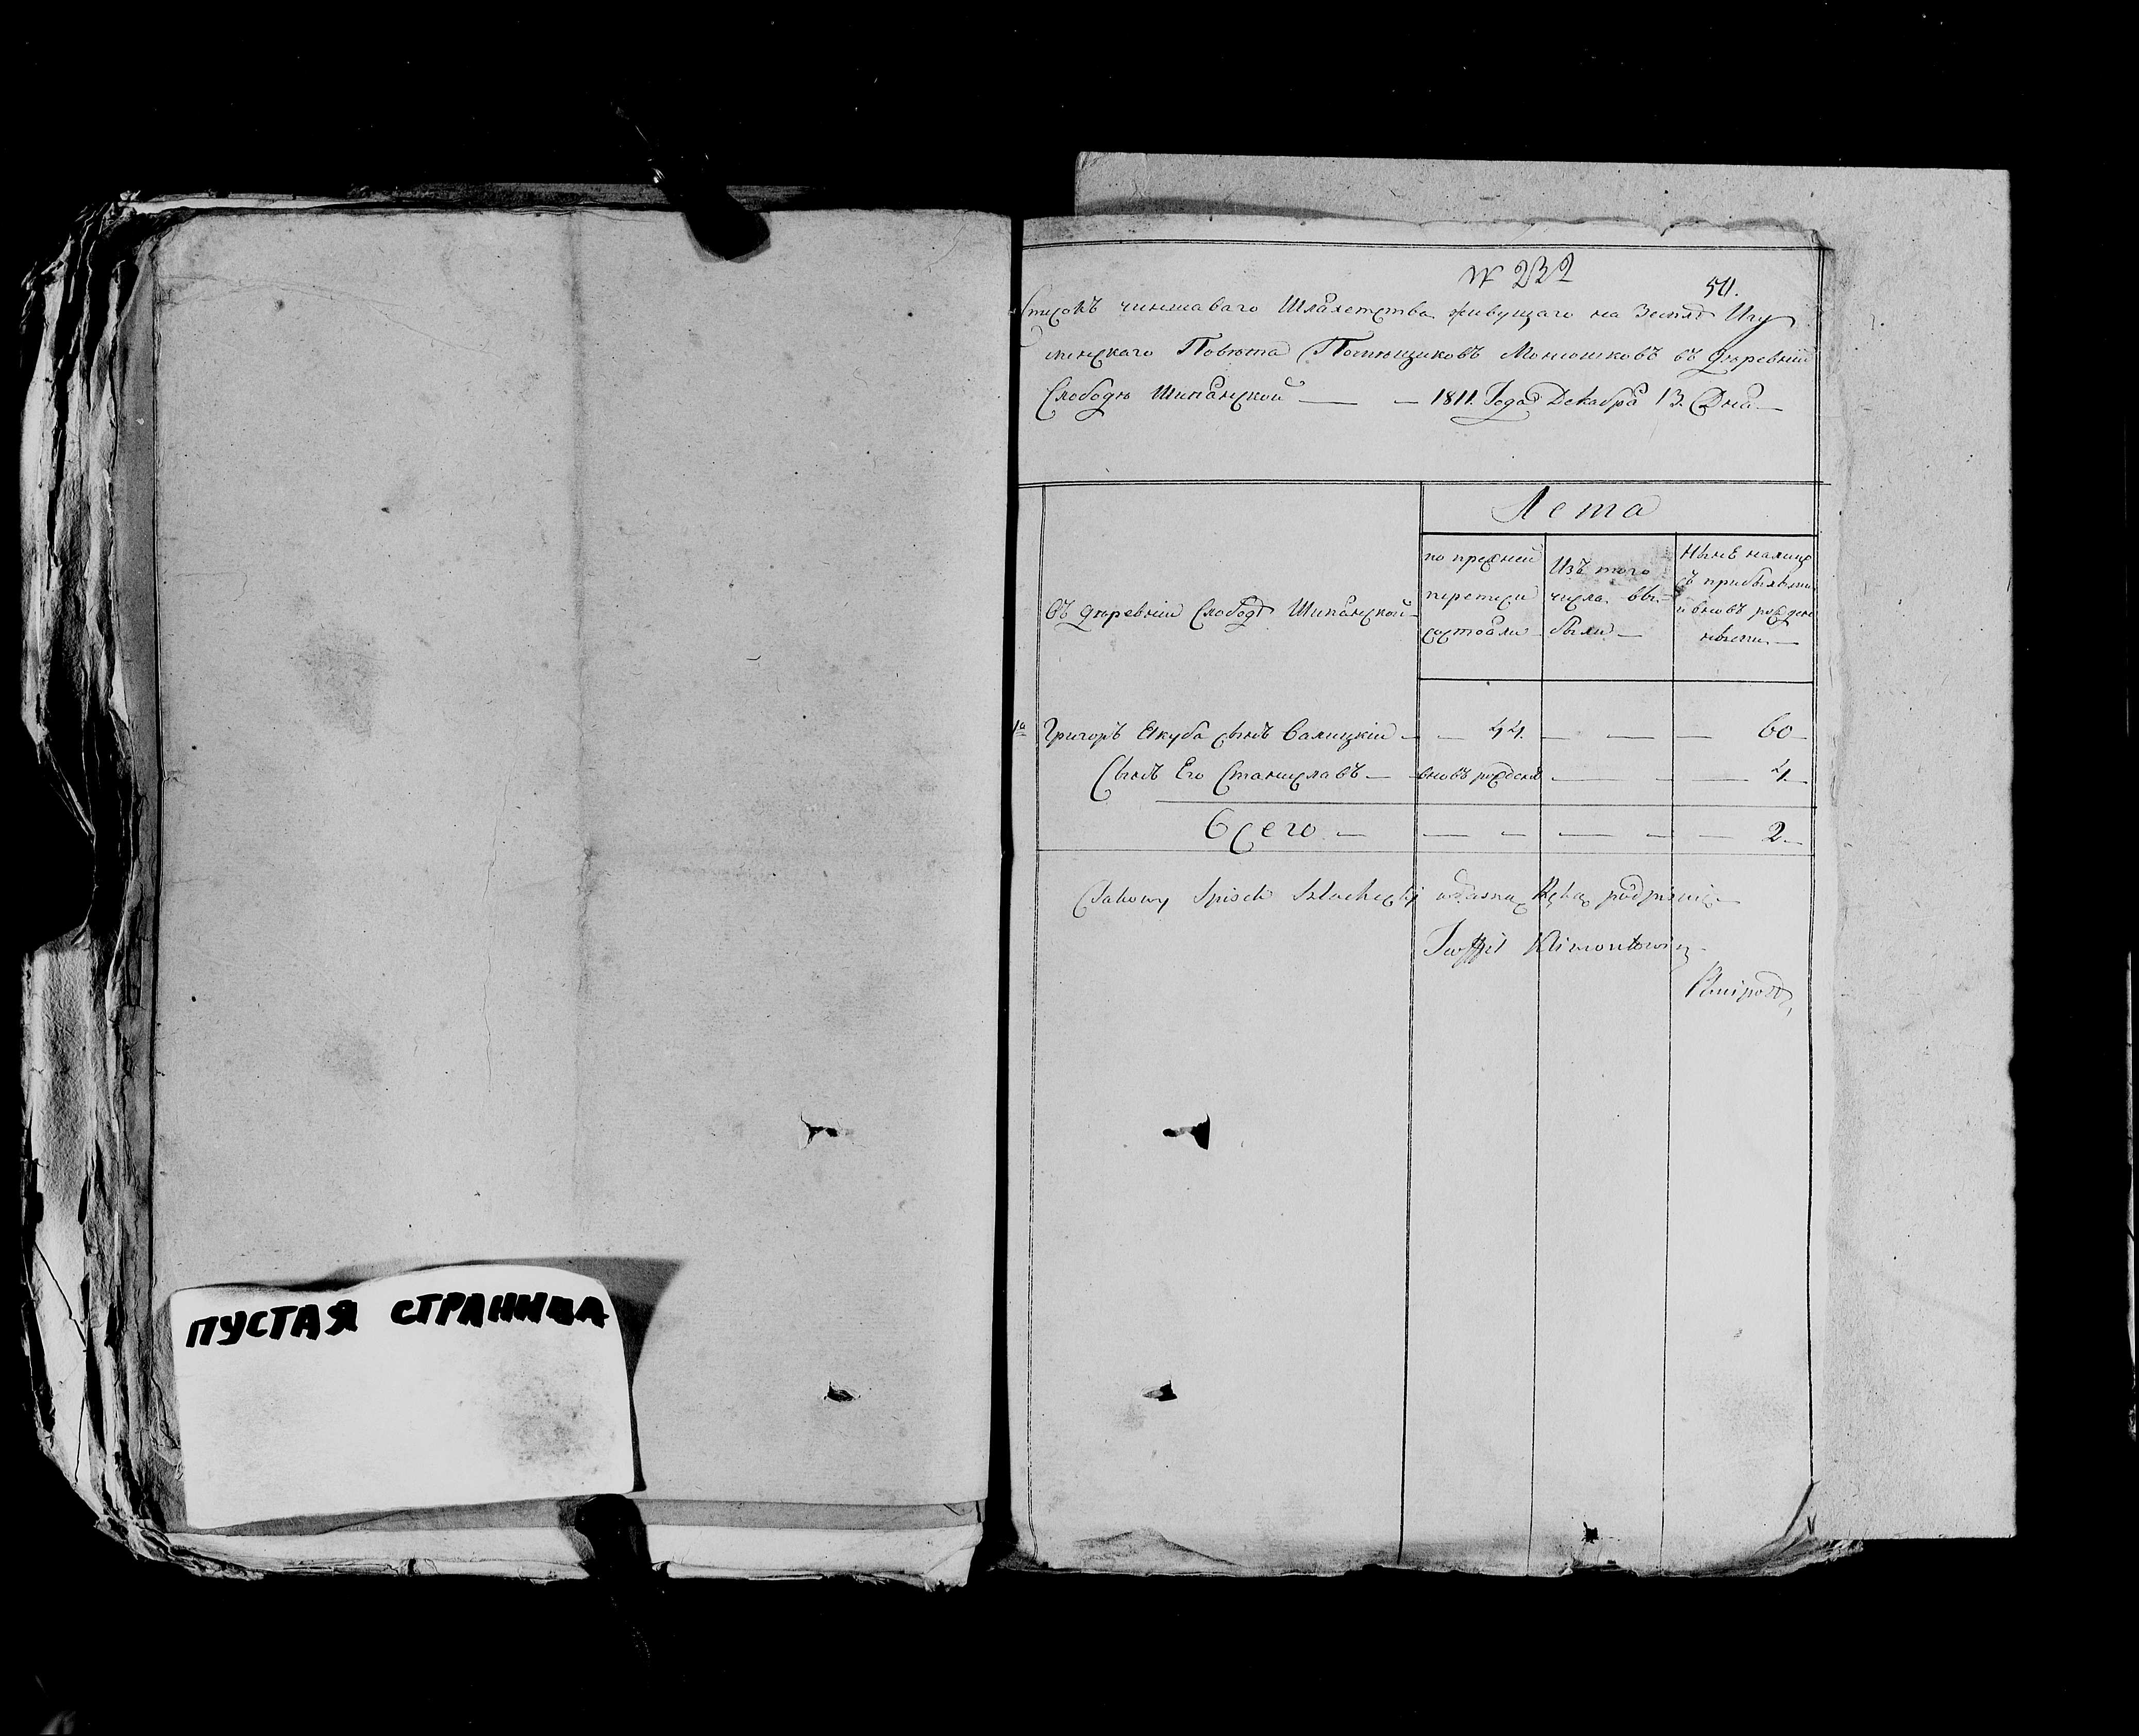 ПУСТАЯ СТРАНИЦА
№ 232
511.
Списокъ чиншаваго Шляхетства живущаго на Землѣ Игу
менскаго Повѣта Помѣщиковъ Монюшковъ въ деревнѣ
Слободѣ Шипянской — — 1811. Года Декабря 13. Дня —
Лета
въ деревнѣ Слободѣ Шипянской —
по прежней
переписи
состояли
Изъ того
числа вы-
были —
Нынѣ налицо
съ прибылыми
и вновь рожден
ными —
1й Григоръ Якуба сынъ Валицкій — — 44. — — — 60 —
Сынъ Его Станиславъ — вновь рожденъ — — — 4 —
Всего — — — — — — 2 —
Takowy Spisek Szlachecki własną Ręką podpisuię —
Klimontowicz